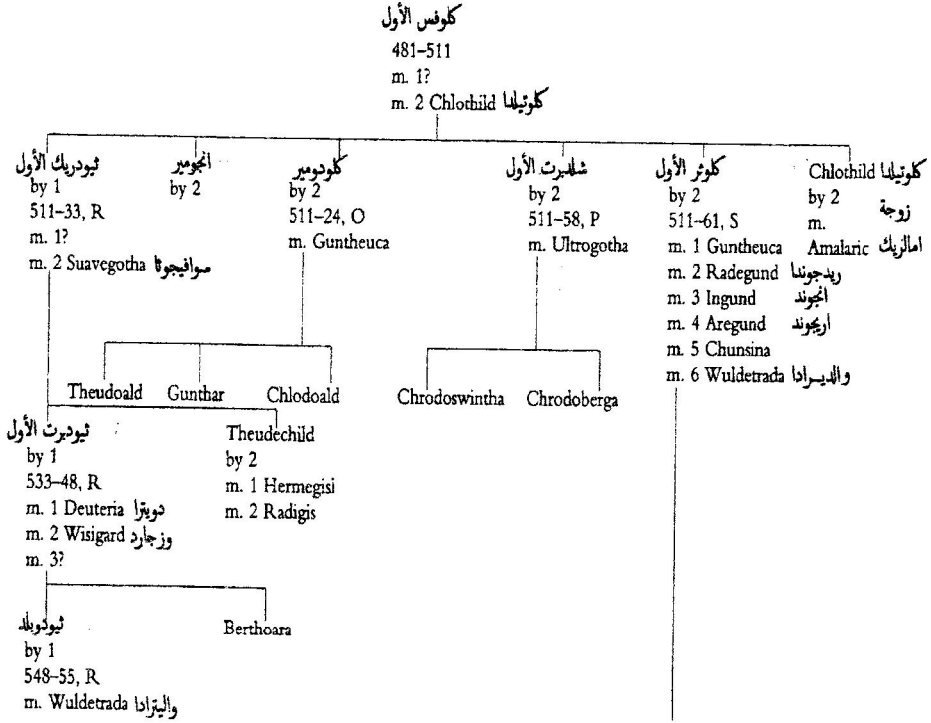 كلوفس الأول
481–511
m. 1?
m. 2 Chlothild كلوتيلدا
ثيودريك الأول
by 1
511–33, R
m. 1?
m. 2 Suavegotha سوافيجوثا
انجومير
by 2
كلودومير
by 2
511–24, O
m. Guntheuca
شلدبرت الأول
by 2
511–58, P
m. Ultrogotha
كلوثر الأول
by 2
511–61, S
m. 1 Guntheuca
m. 2 Radegund ريدجوندا
m. 3 Ingund انجوند
m. 4 Aregund اريجوند
m. 5 Chunsina
m. 6 Wuldetrada والديـرادا
Chlothild كلوتيلدا
by 2
m. زوجة
Amalaric امالريك
Theudoald
Gunthar
Chlodoald
Chrodoswintha
Chrodoberga
ثيودبرت الأول
by 1
533–48, R
m. 1 Deuteria دويترا
m. 2 Wisigard وزجارد
m. 3?
Theudechild
by 2
m. 1 Hermegisi
m. 2 Radigis
ثيودوبلد
by 1
548–55, R
m. Wuldetrada واليترادا
Berthoara